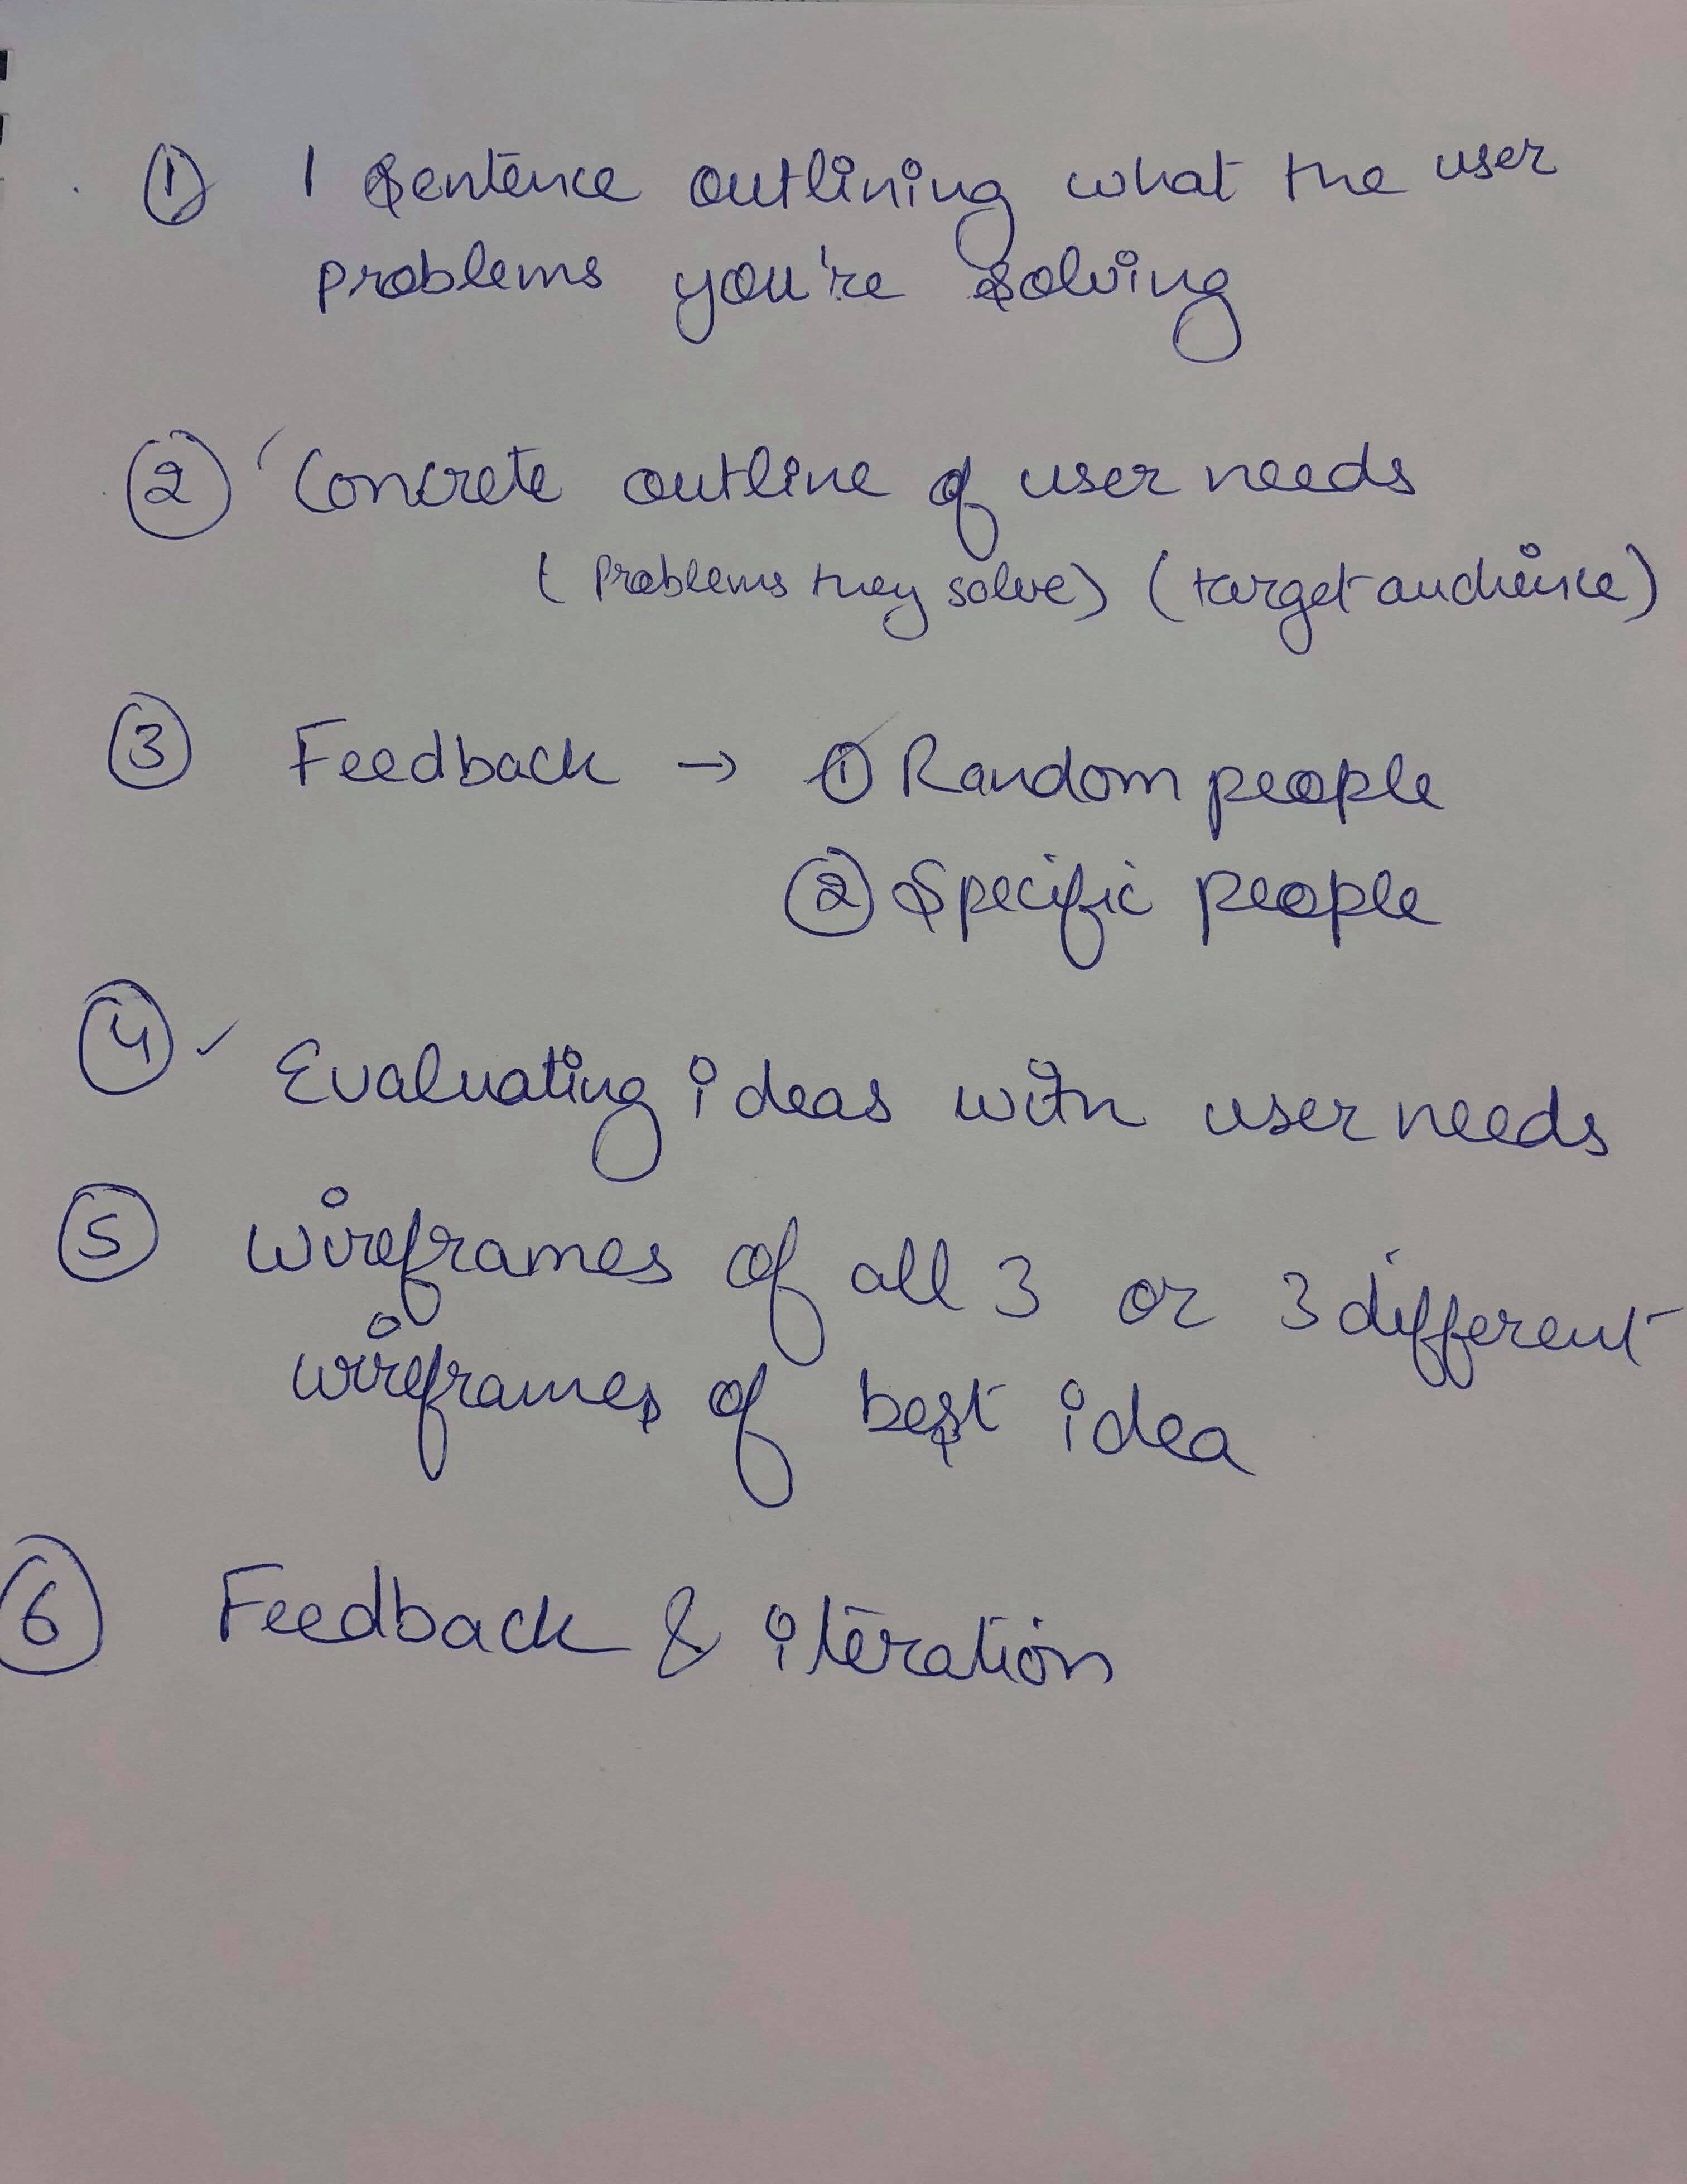 ① 1 Sentence outlining what the user
problems you're solving
② Concrete outline of user needs
(Problems they solve) (target audience)
③ Feedback → ① Random people
② Specific people
④ ✓ Evaluating ideas with user needs
⑤ wireframes of all 3 or 3 different
wireframes of best idea
⑥ Feedback & iteration